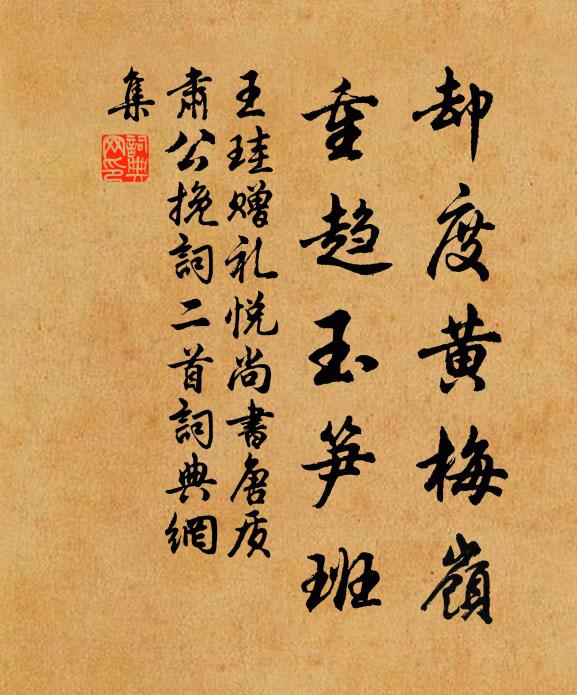 却度黄梅嶺
重趋玉笋班
王珪赠礼悦尚書唐质
肃公挽詞二首詞典網
集
詞典网印